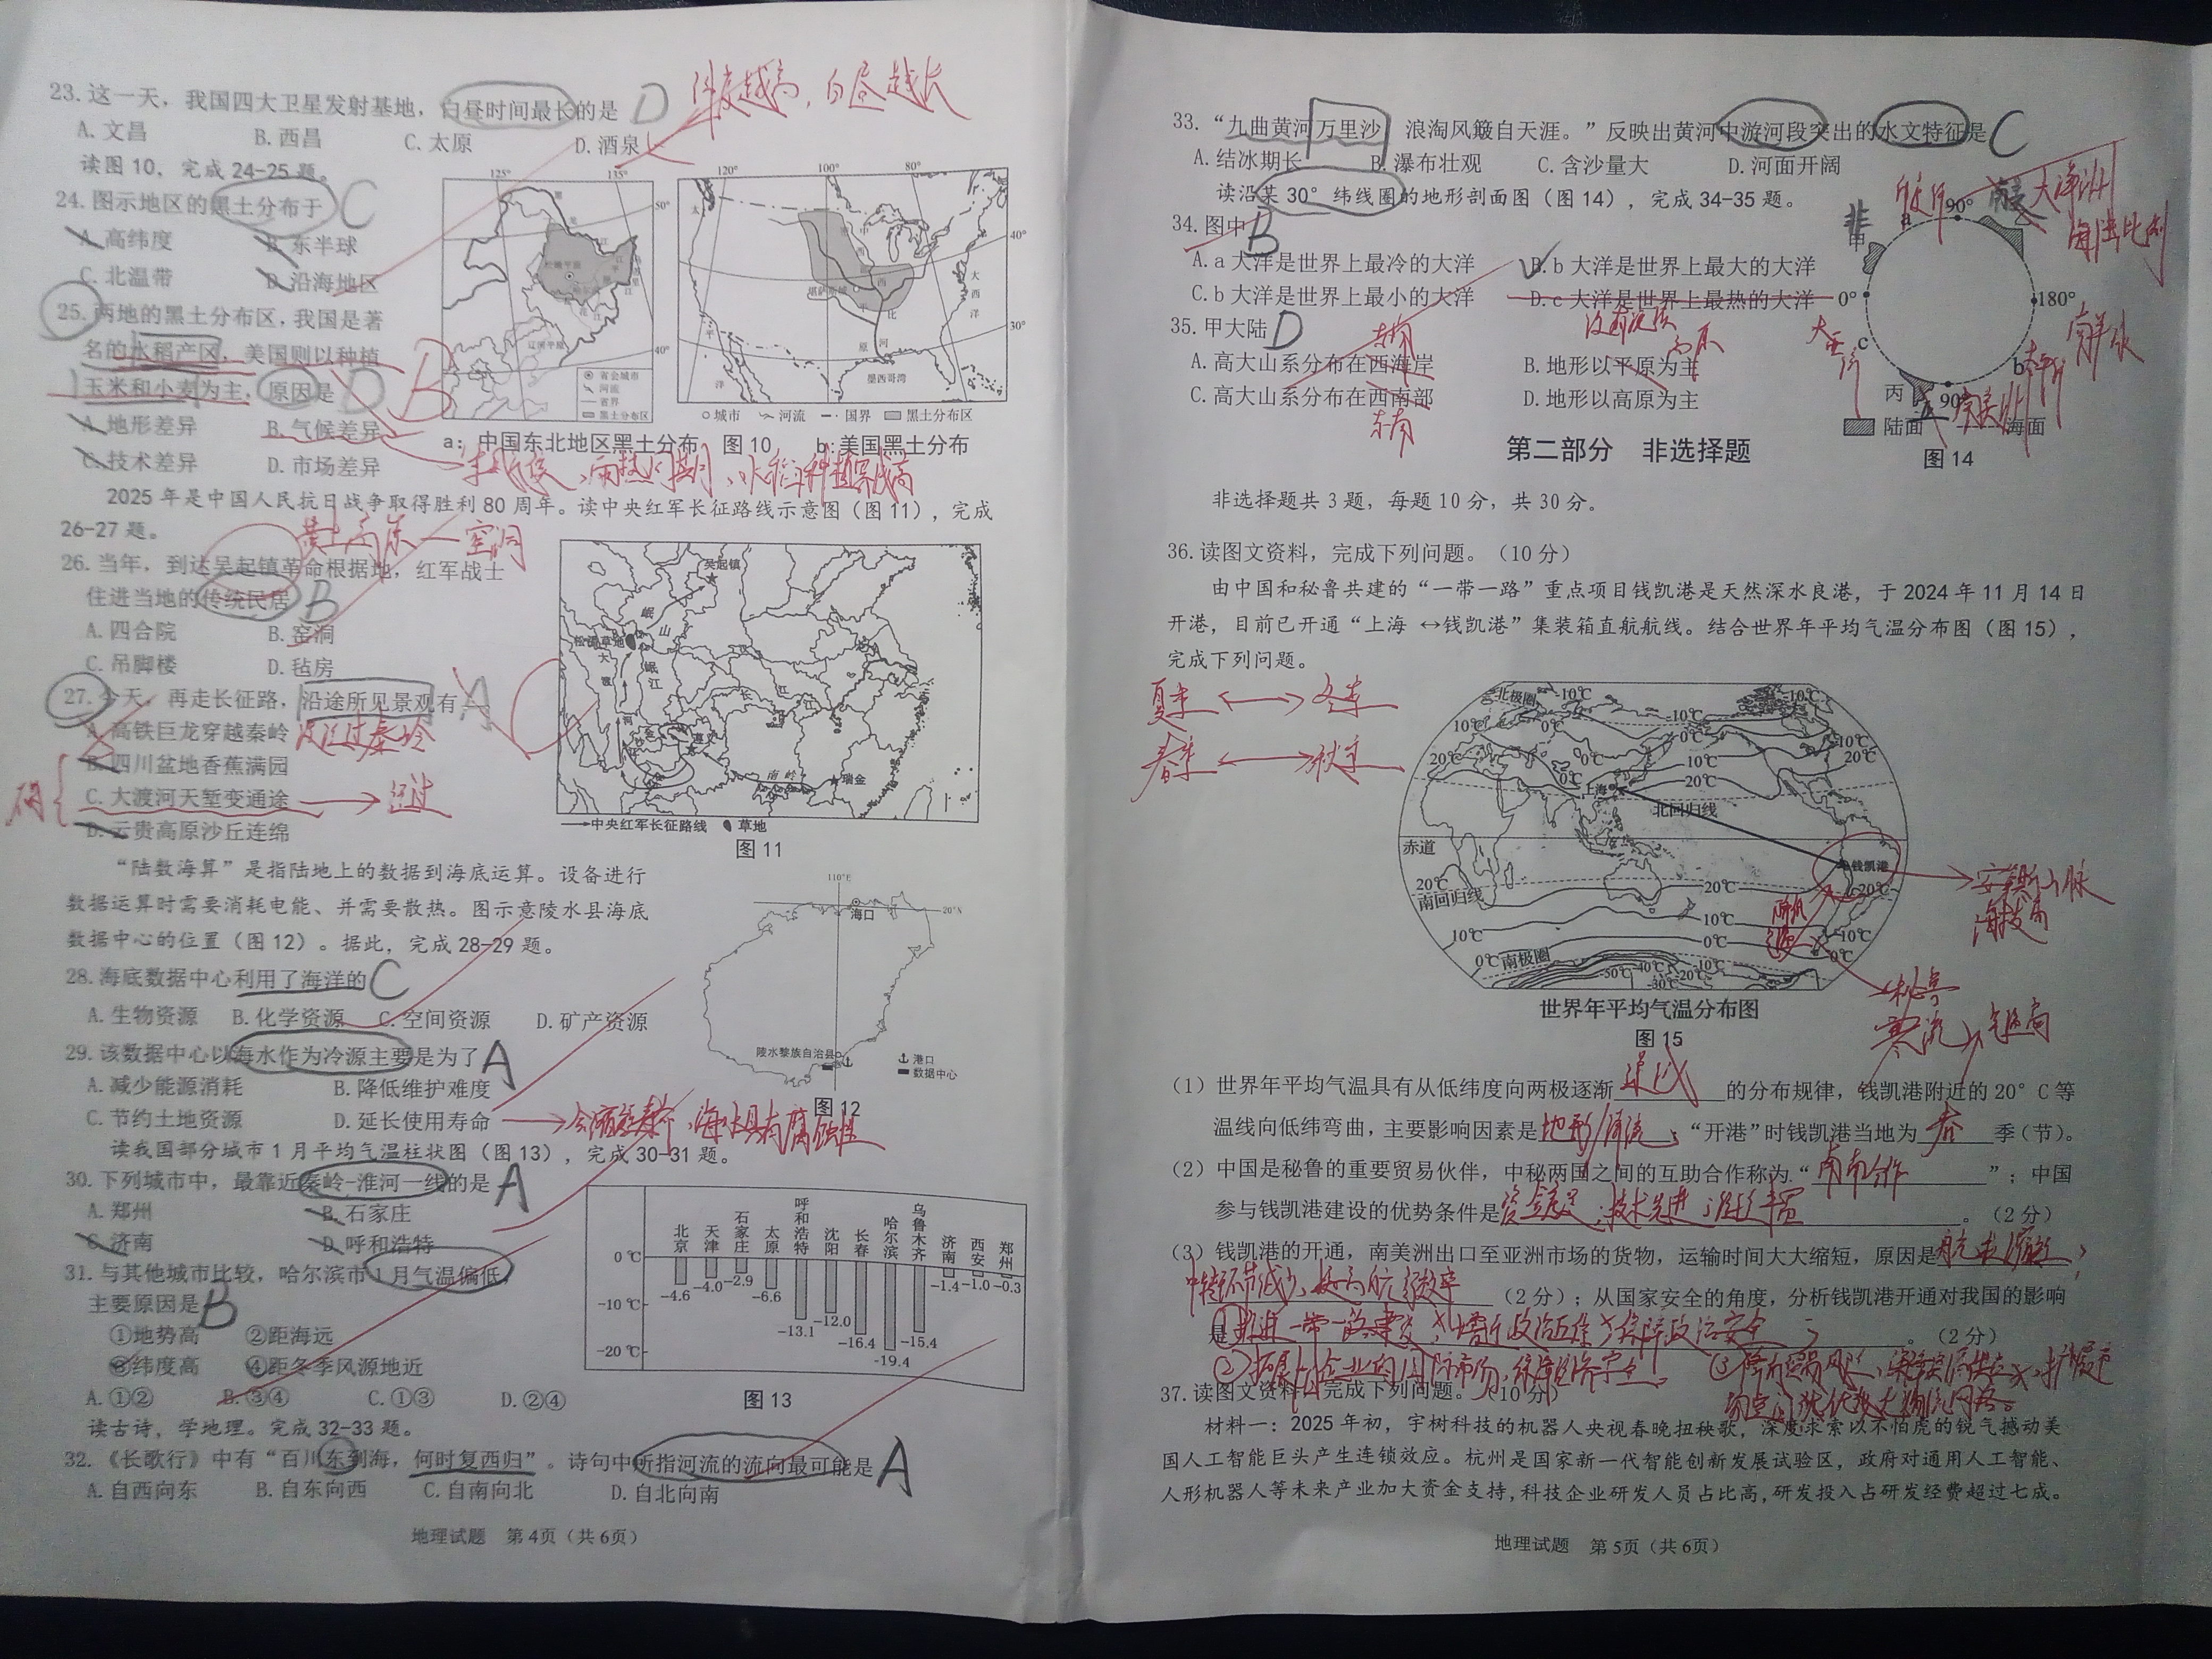 23. 这一天，我国四大卫星发射基地，白昼时间最长的是 D
纬度越高，白昼越长
A. 文昌 B. 西昌 C. 太原 D. 酒泉
读图 10，完成 24-25 题。
24. 图示地区的黑土分布于 C
A. 高纬度 B. 东半球
C. 北温带 D. 沿海地区
25. 两地的黑土分布区，我国是著
名的水稻产区，美国则以种植
玉米和小麦为主，原因是 D B
A. 地形差异 B. 气候差异
C. 技术差异 D. 市场差异
125° 135° 50° 40°
松嫩平原
辽河平原
省会城市
河流
省界
黑土分布区
120° 100° 80° 40° 30°
太
平
洋
大
西
洋
墨西哥湾
城市 河流 国界 黑土分布区
a：中国东北地区黑土分布 图 10 b:美国黑土分布
雨热同期，水稻
2025 年是中国人民抗日战争取得胜利 80 周年。读中央红军长征路线示意图（图 11），完成
26-27 题。
黄土高原—窑洞
26. 当年，到达吴起镇革命根据地，红军战士
住进当地的传统民居 B
A. 四合院 B. 窑洞
C. 吊脚楼 D. 毡房
27. 今天，再走长征路，沿途所见景观有 A
A. 高铁巨龙穿越秦岭 没经过秦岭
B. 四川盆地香蕉满园
C. 大渡河天堑变通途 经过
D. 云贵高原沙丘连绵
吴起镇
岷
山
松潘草地
大
渡
河
岷
江
长
江
遵义
南岭
瑞金
中央红军长征路线 草地
图 11
“陆数海算”是指陆地上的数据到海底运算。设备进行
数据运算时需要消耗电能、并需要散热。图示意陵水县海底
数据中心的位置（图 12）。据此，完成 28-29 题。
28. 海底数据中心利用了海洋的 C
A. 生物资源 B. 化学资源 C. 空间资源 D. 矿产资源
29. 该数据中心以海水作为冷源主要是为了 A
A. 减少能源消耗 B. 降低维护难度
C. 节约土地资源 D. 延长使用寿命
会缩短寿命，海水具有腐蚀性
110°E
海口
20°N
陵水黎族自治县
港口
数据中心
图 12
读我国部分城市 1 月平均气温柱状图（图 13），完成 30-31 题。
30. 下列城市中，最靠近秦岭-淮河一线的是 A
A. 郑州 B. 石家庄
C. 济南 D. 呼和浩特
31. 与其他城市比较，哈尔滨市 1 月气温偏低，
主要原因是 B
①地势高 ②距海远
③纬度高 ④距冬季风源地近
A. ①② B. ③④ C. ①③ D. ②④
北京 天津 石家庄 太原 呼和浩特 沈阳 长春 哈尔滨 乌鲁木齐 济南 西安 郑州
0℃
-10℃
-20℃
-4.6 -4.0 -2.9 -6.6 -13.1 -12.0 -16.4 -19.4 -15.4 -1.4 -1.0 -0.3
图 13
读古诗，学地理。完成 32-33 题。
32. 《长歌行》中有“百川东到海，何时复西归”。诗句中所指河流的流向最可能是 A
A. 自西向东 B. 自东向西 C. 自南向北 D. 自北向南
地理试题 第 4页（共 6页）
33. “九曲黄河万里沙，浪淘风簸自天涯。”反映出黄河中游河段突出的水文特征是 C
A. 结冰期长 B. 瀑布壮观 C. 含沙量大 D. 河面开阔
读沿某 30° 纬线圈的地形剖面图（图 14），完成 34-35 题。
34. 图中 B
A. a 大洋是世界上最冷的大洋 B. b 大洋是世界上最大的大洋
C. b 大洋是世界上最小的大洋 D. c 大洋是世界上最热的大洋
35. 甲大陆 D
A. 高大山系分布在西海岸 B. 地形以平原为主
C. 高大山系分布在西南部 D. 地形以高原为主
东南
非
大洋洲
甲
a
90°
0°
180°
c
b
丙
90°
陆面 海面
图 14
第二部分 非选择题
非选择题共 3 题，每题 10 分，共 30 分。
36. 读图文资料，完成下列问题。（10 分）
由中国和秘鲁共建的“一带一路”重点项目钱凯港是天然深水良港，于 2024 年 11 月 14 日
开港，目前已开通“上海 ↔钱凯港”集装箱直航航线。结合世界年平均气温分布图（图 15），
完成下列问题。
夏季 ↔ 冬季
春季 ↔ 秋季
北极圈
上海
北回归线
赤道
钱凯港
南回归线
南极圈
安第斯山脉
海拔高
秘鲁
寒流
世界年平均气温分布图
图 15
（1）世界年平均气温具有从低纬度向两极逐渐 递减 的分布规律，钱凯港附近的 20° C 等
温线向低纬弯曲，主要影响因素是 地形/洋流 ；“开港”时钱凯港当地为 春 季（节）。
（2）中国是秘鲁的重要贸易伙伴，中秘两国之间的互助合作称为“ 南南合作 ”；中国
参与钱凯港建设的优势条件是 资金充足；技术先进；经验丰富 。（2 分）
（3）钱凯港的开通，南美洲出口至亚洲市场的货物，运输时间大大缩短，原因是 航程缩短，
中转环节减少，提高航行效率 （2 分）；从国家安全的角度，分析钱凯港开通对我国的影响
是 ①推进一带一路建设，增进政治互信，保障政治安全 。（2 分）
②拓展中企业的国际市场，保障经济安全。
37. 读图文资料，完成下列问题。（10 分）
材料一：2025 年初，宇树科技的机器人央视春晚扭秧歌，深度求索以不怕虎的锐气撼动美
国人工智能巨头产生连锁效应。杭州是国家新一代智能创新发展试验区，政府对通用人工智能、
人形机器人等未来产业加大资金支持，科技企业研发人员占比高，研发投入占研发经费超过七成。
地理试题 第 5页（共 6页）